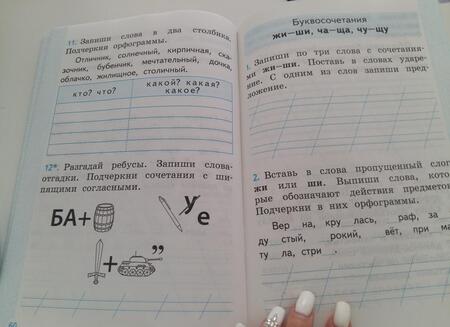 11. Запиши слова в два столбика.
Подчеркни орфограммы.
Отличник, солнечный, кирпичная, ска-
зочник, бубенчик, мечтательный, дочка,
облачко, жилищное, столичный.
кто? что?
какой? какая?
какое?
12*. Разгадай ребусы. Запиши слова-
отгадки. Подчеркни сочетания с ши-
пящими согласными.
БА+
У
е
+
”
60
Буквосочетания
жи—ши, ча—ща, чу—щу
1. Запиши по три слова с сочетания-
ми жи—ши. Поставь в словах ударе-
ние. С одним из слов запиши пред-
ложение.
2. Вставь в слова пропущенный слог
жи или ши. Выпиши слова, кото-
рые обозначают действия предметов.
Подчеркни в них орфограммы.
Вер на, кру лась, раф, за
ду стый, рокий, вёт, при ма
ту ла, стри .